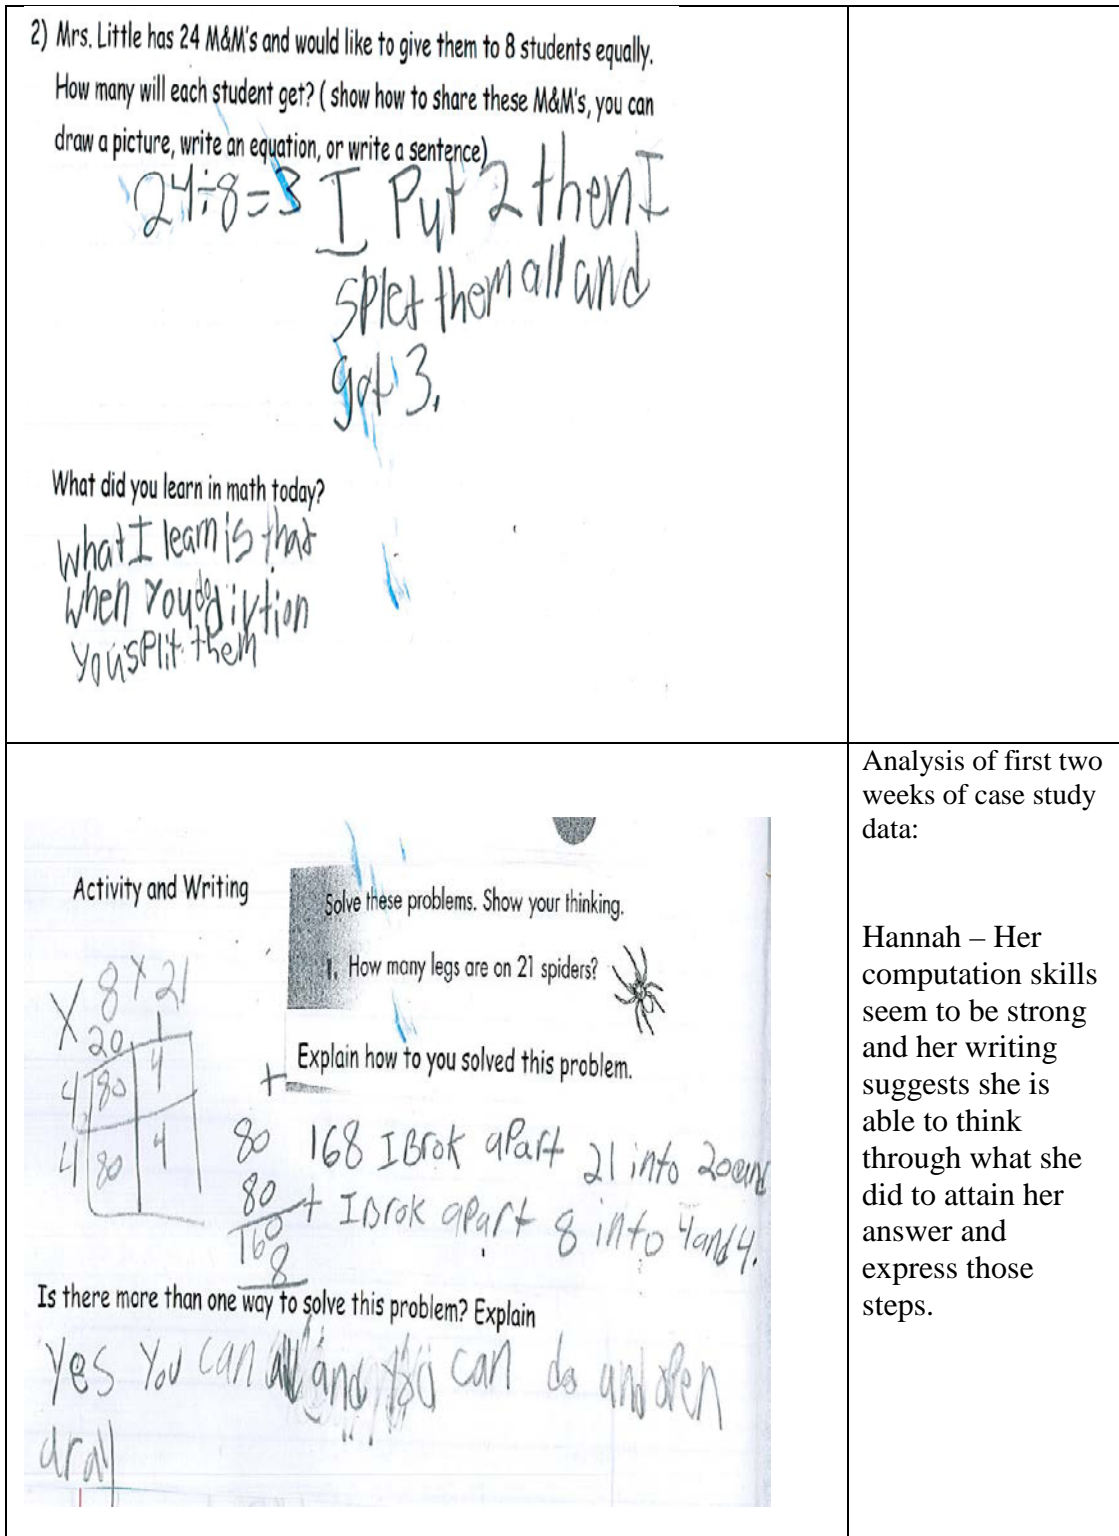 2) Mrs. Little has 24 M&M's and would like to give them to 8 students equally.
How many will each student get? ( show how to share these M&M's, you can
draw a picture, write an equation, or write a sentence)
24÷8=3 I Put 2 then I
splet them all and
got 3.
What did you learn in math today?
what I learn is that
when you do divtion
you split them
Analysis of first two
weeks of case study
data:
Hannah – Her
computation skills
seem to be strong
and her writing
suggests she is
able to think
through what she
did to attain her
answer and
express those
steps.
Activity and Writing
Solve these problems. Show your thinking.
1. How many legs are on 21 spiders?
Explain how to you solved this problem.
8 x 21
X 20 1
4 80 4
4 80 4
+
80
80
160
8
168 I Brok apart 21 into 20 and
+ I Brok apart 8 into 4 and 4.
Is there more than one way to solve this problem? Explain
yes you can and you can do and open
aray